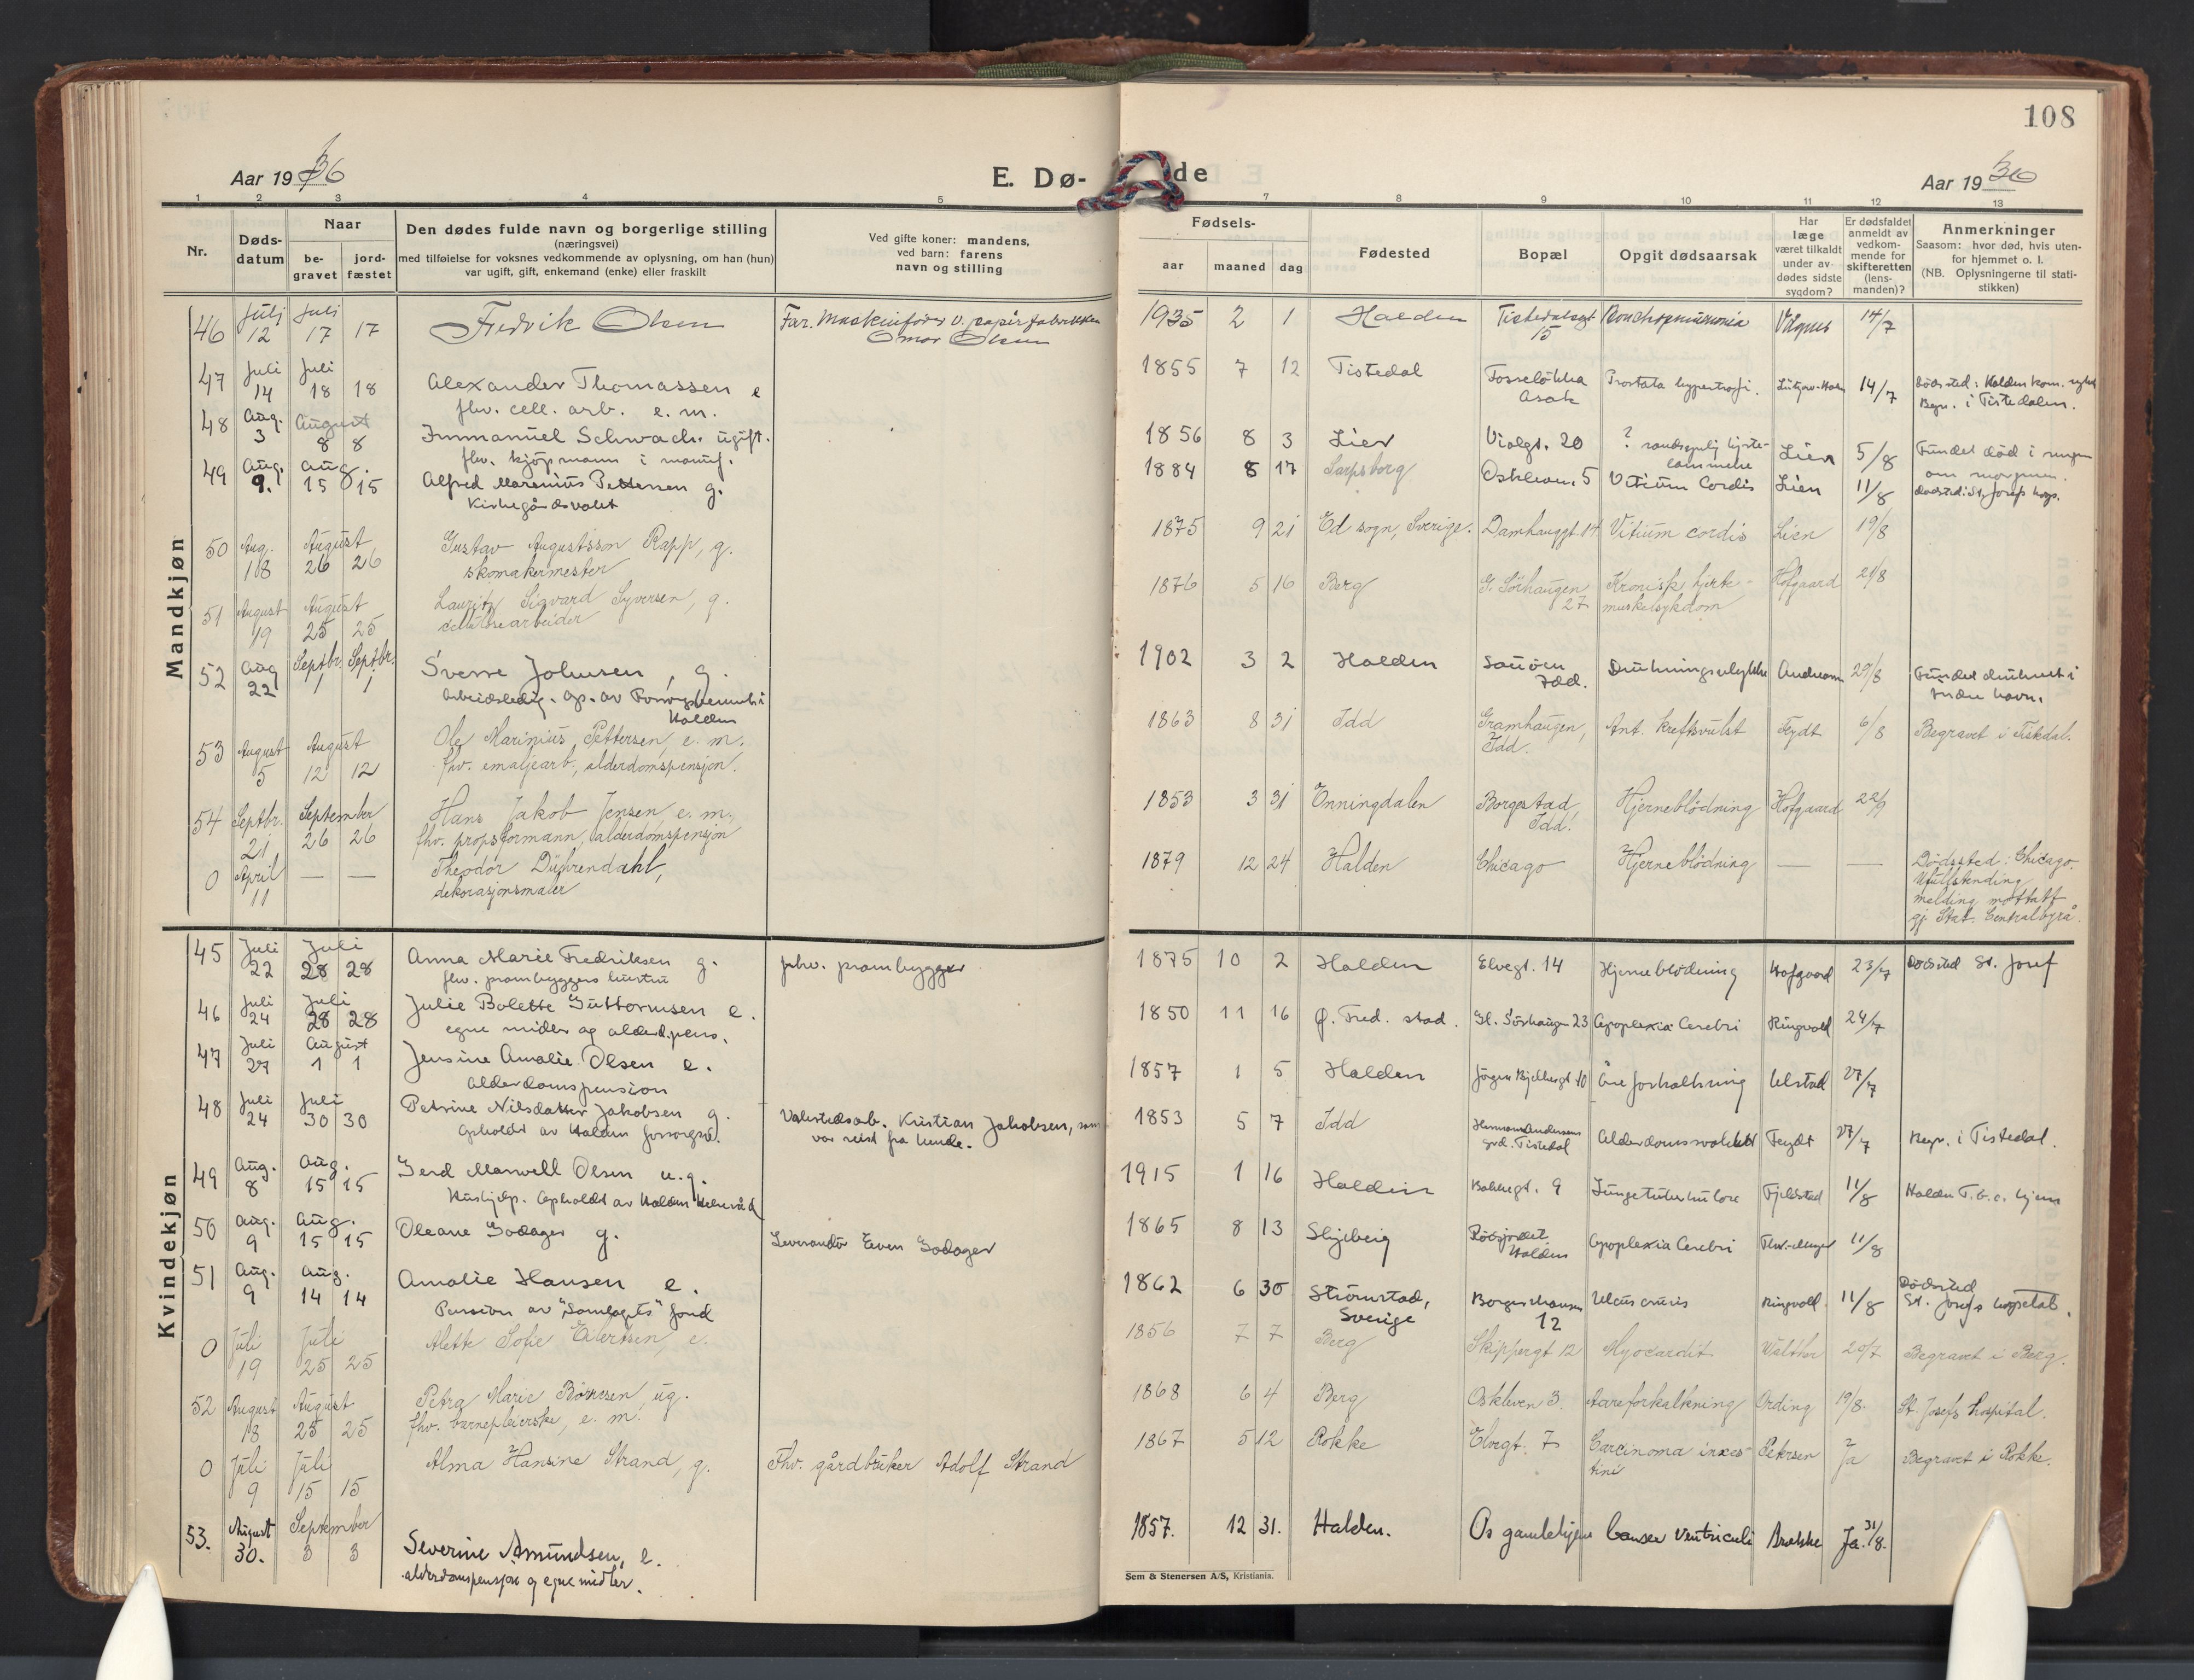 108
Aar 1936
E. Dø-
de
Aar 1936
1 2 3 4 5
7 8 9 10 11 12 13
Nr.
Døds-
datum
Naar
be-
gravet
jord-
fæstet
Den dødes fulde navn og borgerlige stilling
(næringsvei)
med tilføielse for voksnes vedkommende av oplysning, om han (hun)
var ugift, gift, enkemand (enke) eller fraskilt
Ved gifte koner: mandens,
ved barn: farens
navn og stilling
Fødsels-
aar maaned dag
Fødested
Bopæl
Opgit dødsaarsak
Har
læge
været tilkaldt
under av-
dødes sidste
sygdom?
Er dødsfaldet
anmeldt av
vedkom-
mende for
skifteretten
(lens-
manden)?
Anmerkninger
Saasom: hvor død, hvis uten-
for hjemmet o. l.
(NB. Oplysningerne til stati-
stikken)
Mandkjøn
46 Juli 12 Juli 17 17 Fredrik Olsen Far. Maskinfører v. papirfabrikken
Omar Olsen 1935 2 1 Halden Tistedalsgt 15 Bronchopneumonia Vågnes 14/7
47 Juli 14 Juli 18 18 Alexander Thomassen e
fhv. cell. arb. e. m. 1855 7 12 Tistedal Fosseløkka
Asak Prostata hypertrofi. 14/7 Dødssted: Halden kom. sykeh
Begr. i Tistedalen.
48 Aug. 3 August 8 8 Immanuel Schwach. ugift.
fhv. kjøpmann i manuf. 1856 8 3 Lier Violgt. 20 ? sandsynlig hjerte-
lammelse Lien 5/8 Fundet død i sengen
om morgenen.
49 Aug. 9. Aug. 15 15 Alfred Marenius Pettersen g.
Kirkegårdsvakt 1884 8 17 Sarpsborg Oskleven. 5 Vitium Cordis Lien 11/8 dødssted: St. Josefs hosp.
50 Aug. 18 August 26 26 Gustav Augustsson Rapp, g.
skomakermester 1875 9 21 Ed sogn, Sverige. Damhauggt. 14 Vitium cordis Lien 19/8
51 August 19 August 25 25 Lauritz Sigvard Syversen, g.
cellulosearbeider 1876 5 16 Berg G. Sörhaugen
27 Kronisk hjerte-
muskelsykdom Hofgaard 21/8
52 Aug 22 Septbr. 1 Septbr. 1 Sverre Johnsen, g.
Arbeidsledig. Op. av Forsorgsvesenet i
Halden 1902 3 2 Halden Sauøen
Idd. Drukningsulykke 29/8 Fundet druknet i
indre havn.
53 August 5 August 12 12 Ole Marinius Pettersen, e. m.
fhv. emaljearb., alderdomspensjon. 1863 8 31 Idd Gramhaugen,
Idd. Ant. kreftsvulst Feydt 6/8 Begravet i Tistedal.
54 Septbr. 21 September 26 26 Hans Jakob Jensen, e. m.,
fhv. propsformann, alderdomspensjon 1853 3 31 Enningdalen Borgestad
Idd. Hjerneblödning Hofgaard 22/9
0 April 11 — — Theodor Dührendahl,
dekorasjonsmaler 1879 12 24 Halden Chicago Hjerneblödning — — Dödssted: Chicago.
Ufullstending
melding mottatt
gj. Stat. Centralbyrå.
Kvindekjøn
45 Juli 22 Juli 28 28 Anna Marie Fredriksen g.
fhv. prambyggers hustru fhv. prambygger 1875 10 2 Halden Elvegt. 14 Hjerneblødning Hofgaard 23/7 Dødssted St. Josef
46 Juli 24 Juli 28 28 Julie Bolette Guttormsen e.
egne midler og alderd.pens. 1850 11 16 Ø. Fred. stad. Gl. Sørhaugen 23 Apoplexia Cerebri Ringvold 24/7
47 Juli 27 August 1 1 Jensine Amalie Olsen e.
Alderdomspension 1857 1 5 Halden Jørgen Bjelkesgt 10 Åreforkalkning Ulstad 27/7
48 Juli 24 Juli 30 30 Petrine Nilsdatter Jakobsen g.
Opholdt av Halden forsorgsv. Valsetedsarb. Kristian Jakobsen, som
var reist fra hende. 1853 5 7 Idd Herman Andersens
grd. Tistedal Alderdomssvakhet Feydt 27/7 Begr. i Tistedal.
49 Aug. 8 Aug. 15 15 Gerd Marwell Olsen u.g.
Hushjelp. Opholdt av Halden Helseråd 1915 1 16 Halden Bakkegt. 9 Lungetuberkulose Fjeldstad 11/8 Halden T.b.c. hjem
50 Aug. 9 Aug. 15 15 Oleane Godager g. Leverandør Even Godager 1865 8 13 Skjeberg Rødsfjordet.
Halden Apoplexia Cerebri 11/8
51 Aug. 9 Aug. 14 14 Amalie Hansen e.
Pension av "Samlagets" fond 1862 6 30 Strömstad,
Sverige Borgershausen
12 Ulcus cruris Ringvold. 11/8 Dødssted
St. Josefs hospital.
0 Juli 19 Juli 25 25 Alette Sofie Eilertsen, e. 1856 7 7 Berg Skippergt 12 Myocardit Walther 20/7 Begravet i Berg.
52 August 18 August 25 25 Petra Marie Börresen, ug.
fhv. barnepleierske, e. m. 1868 6 4 Berg Oskleven 3. Aareforkalkning Ording 19/8. St. Josefs hospital.
0 Juli 9 Juli 15 15 Alma Hansine Strand, g. Fhv. gårdbruker Adolf Strand 1867 5 12 Rokke Elvegt. 7 Carcinoma intes-
tini Petersen Ja Begravet i Rokke.
53. August 30. September 3 3 Severine Amundsen, e.
alderdomspensjon og egne midler. 1857. 12 31. Halden. Os gamlehjem Cancer Ventriculi Ja. 31/8.
Sem & Stenersen A/S, Kristiania.